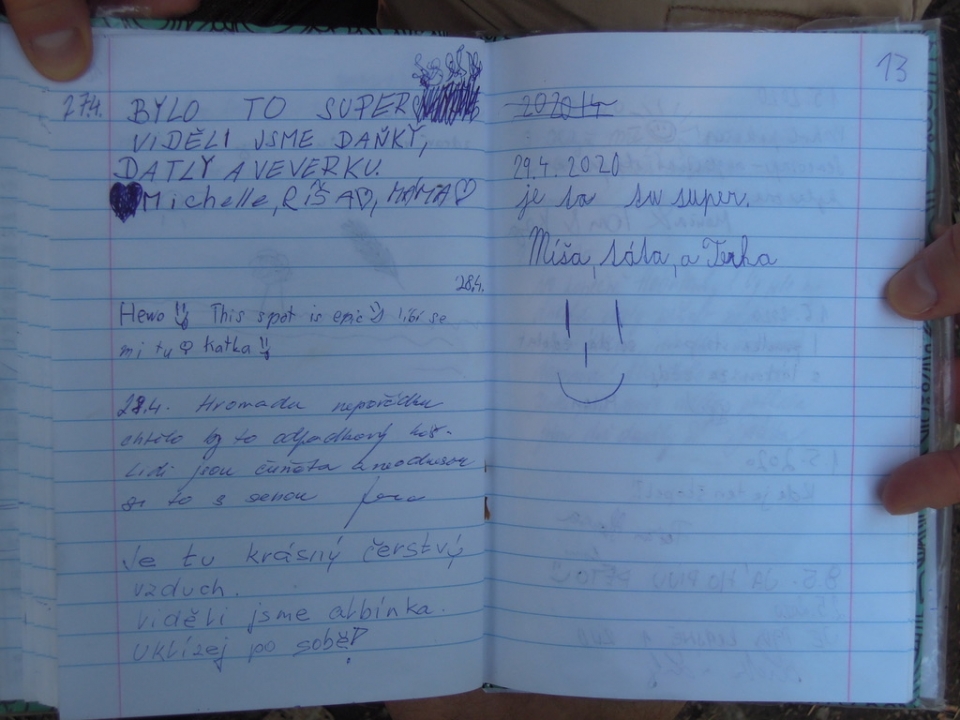 27.4. BYLO TO SUPER
VIDĚLI JSME DAŇKY,
DATLY A VEVERKU.
Michelle, RÍŠA♡, MÁMA♡
28.4.
Hewo This spot is epic líbí se
mi tu Katka
28.4. Hromada nepořádku
chtělo by to odpadkový koš.
Lidi jsou čuňata a neodnesou
si to s sebou
Je tu krásný čerstvý
vzduch.
Viděli jsme albínka.
Uklízej po sobě!
13
29.4. 2020
je to tu super.
Míša, táta, a Terka